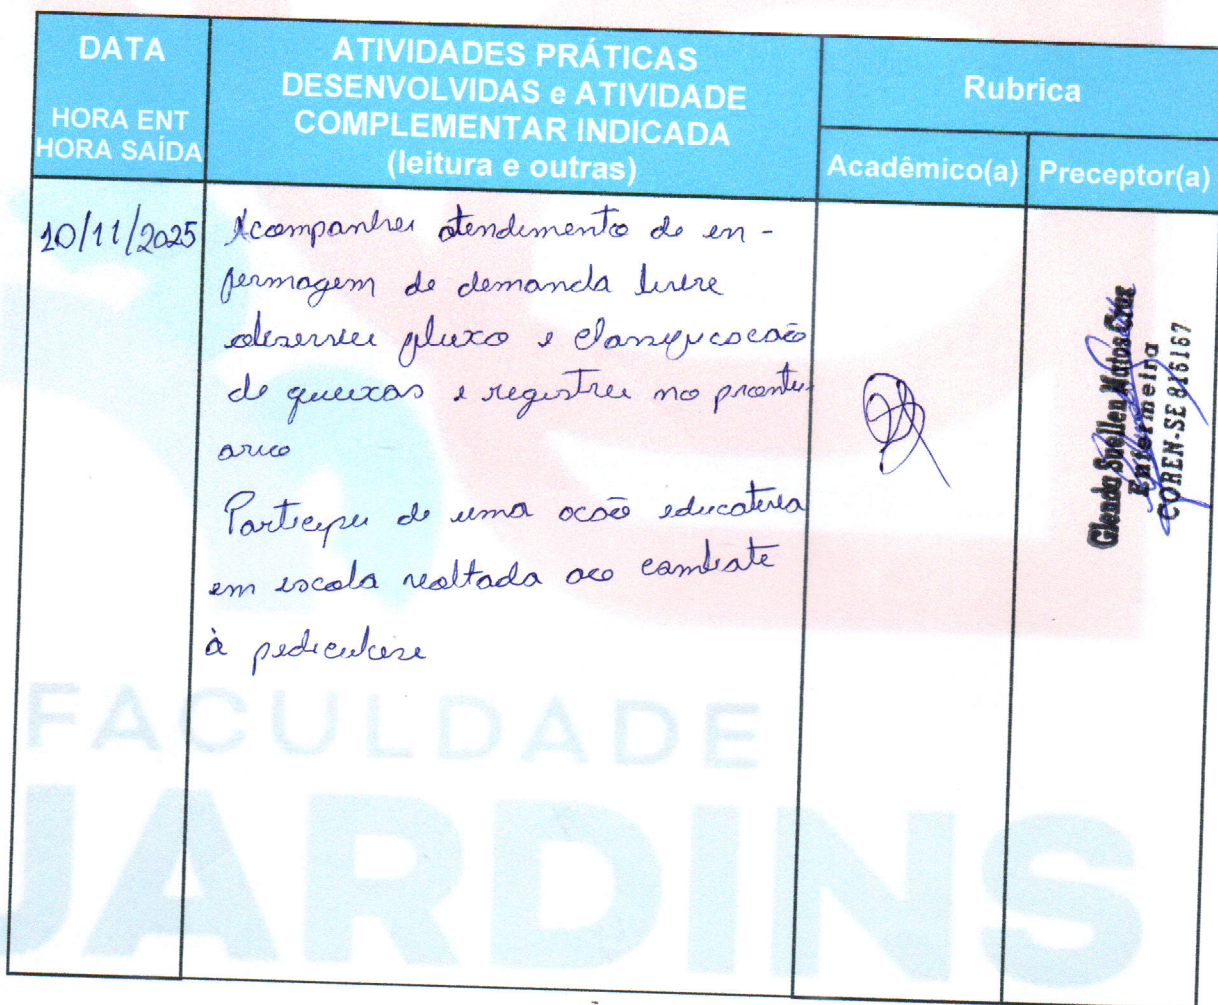 DATA
HORA ENT
HORA SAÍDA
ATIVIDADES PRÁTICAS
DESENVOLVIDAS e ATIVIDADE
COMPLEMENTAR INDICADA
(leitura e outras)
Rubrica
Acadêmico(a)
Preceptor(a)
10/11/2025
Acompanhei atendimento de en-
fermagem de demanda livre
observei fluxo e classificacão
de queixas e registrei no prontu-
ario
Participei de uma acão educativa
em escola voltada ao combate
à pediculose
Glenda Suellen Matos Cruz
Enfermeira
COREN-SE 816167
FACULDADE
JARDINS